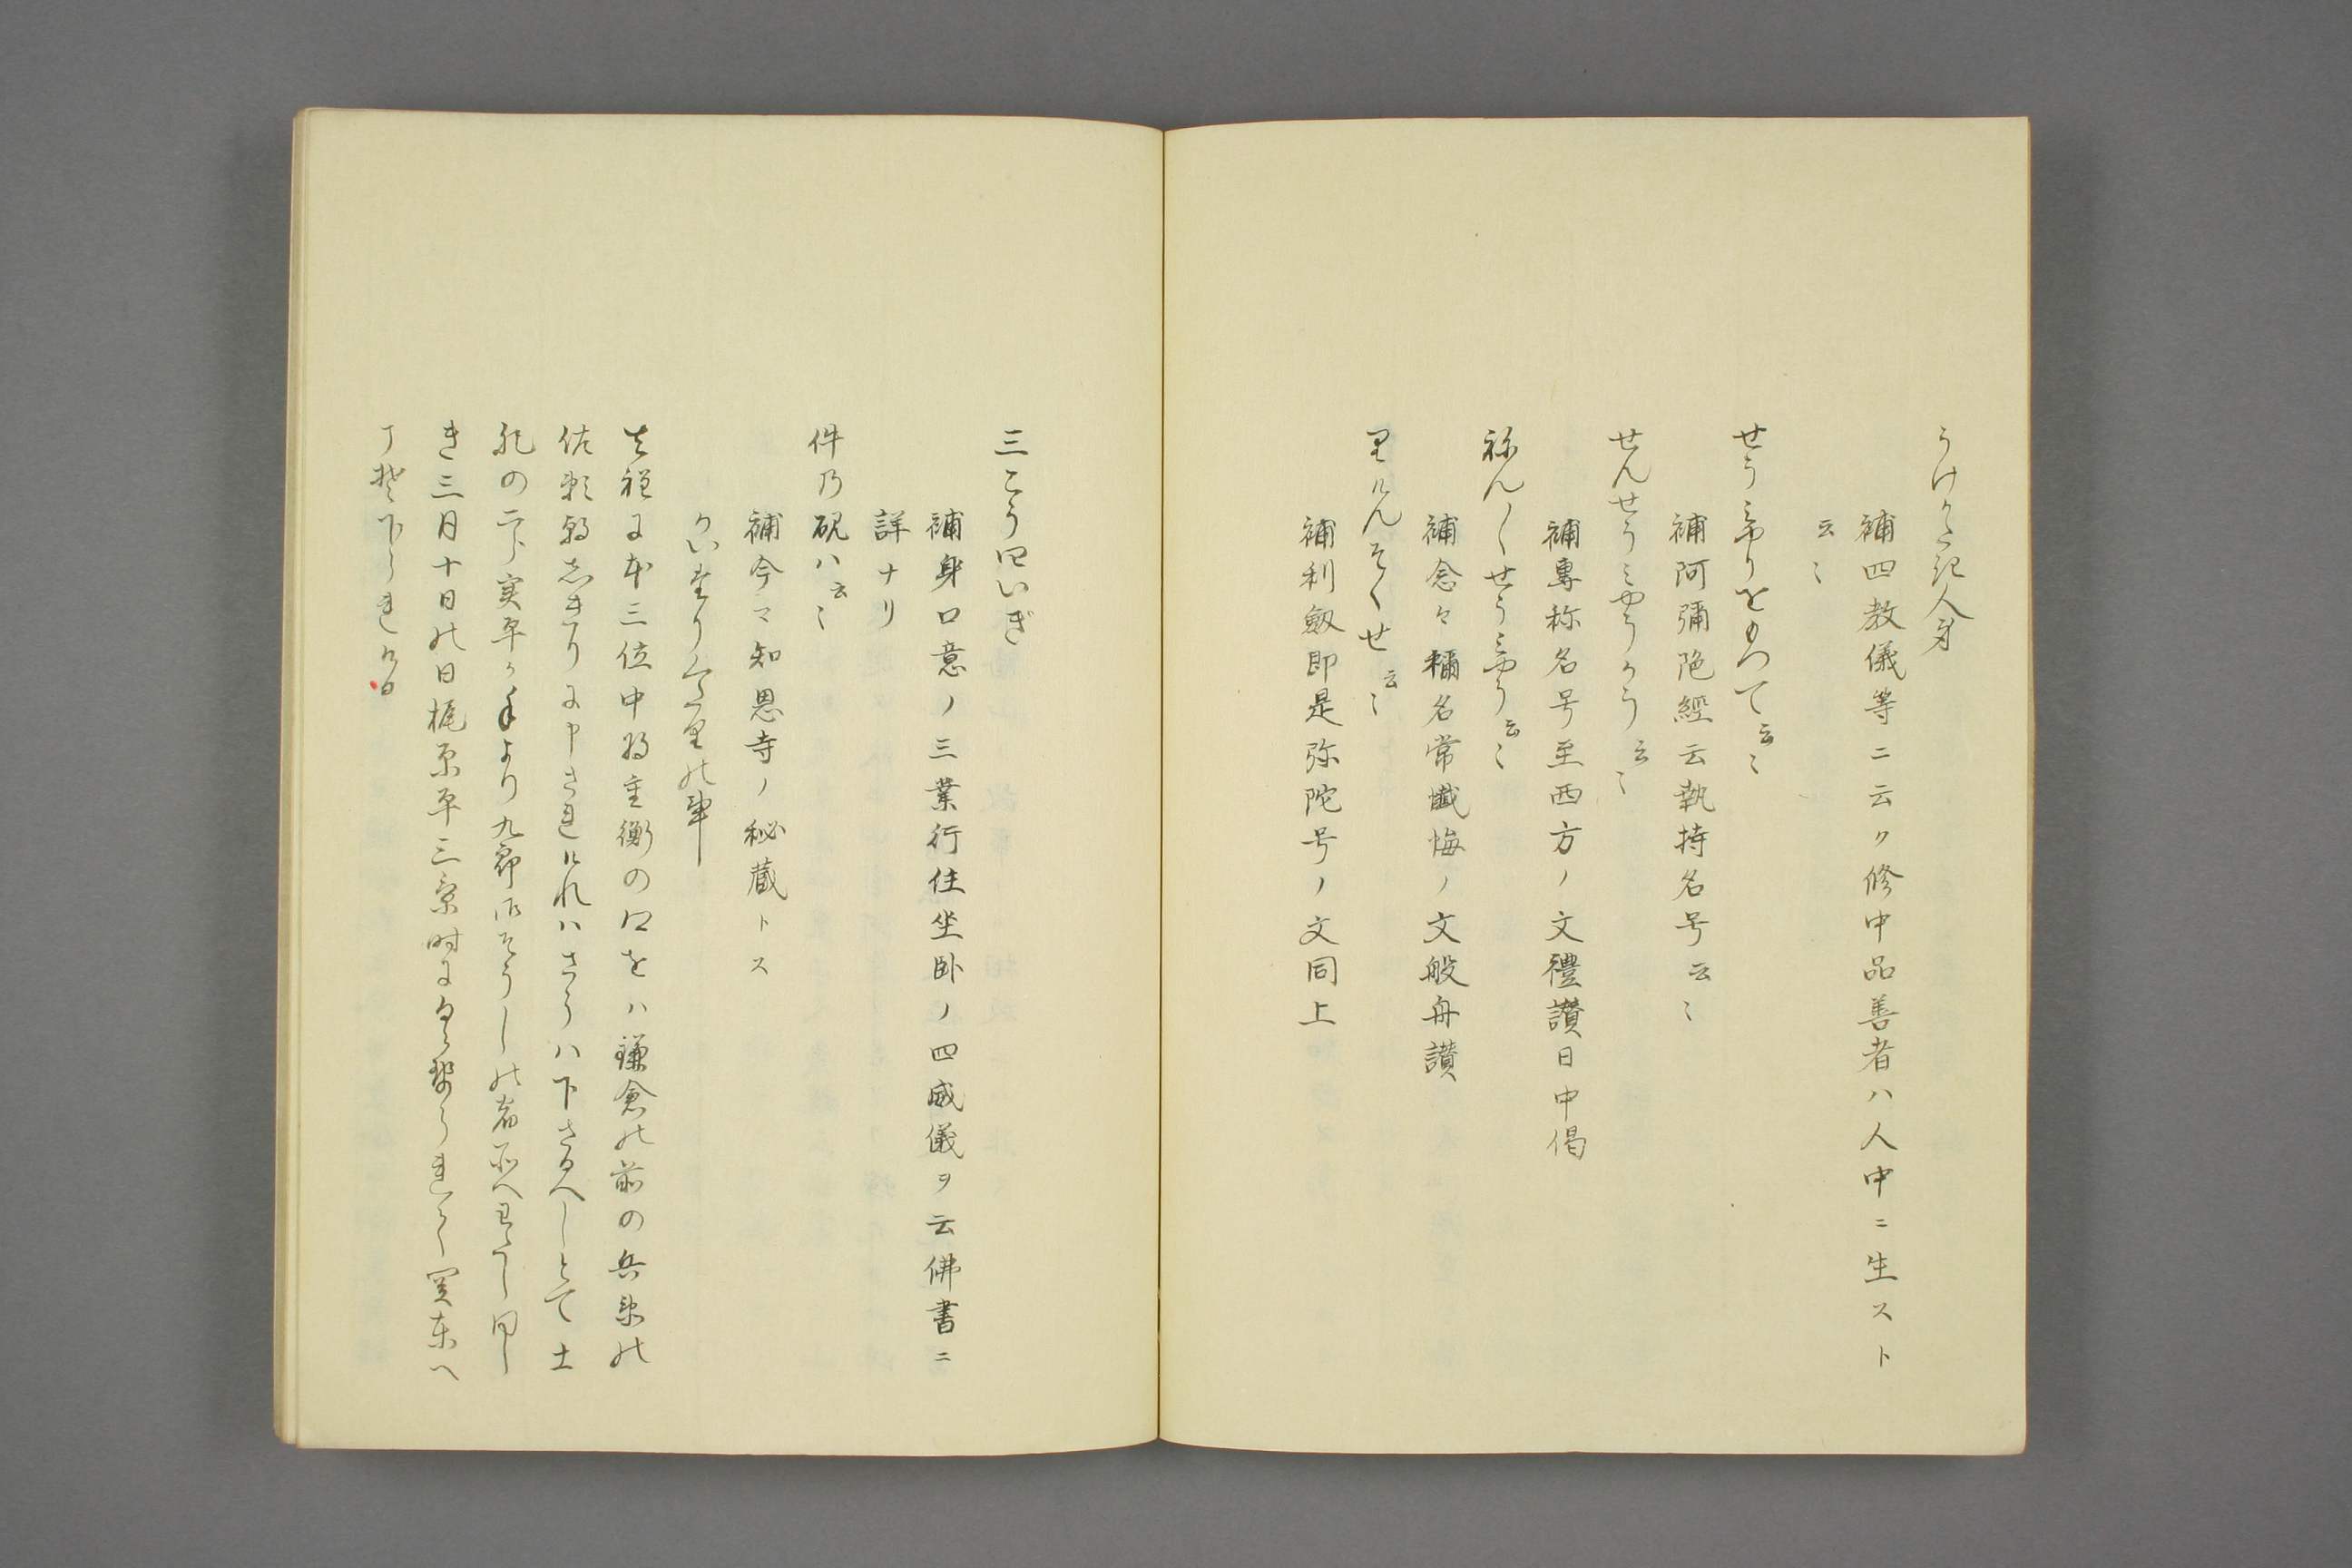 うけかたき人身
補四教儀等ニ云ク修中品善者ハ人中ニ生スト
云〻
せうみやうをもつて云〻
補阿彌陁經云執持名号云〻
せんせうみやうかう云〻
補專称名号至西方ノ文禮讃日中偈
ねん〱せうみやう云〻
補念々稱名常懺悔ノ文般舟讃
りけんそくせ云〻
補利劔即是弥陀号ノ文同上
三こう四いぎ
補身口意ノ三業行住坐卧ノ四威儀ヲ云佛書ニ
詳ナリ
件乃硯ハ云〻
補今ニ知恩寺ノ秘蔵トス
かいたうくたりの事
去程に本三位中将重衡の卿をハ鎌倉の前の兵衛の
佐頼朝しきりに申されけれハさらハ下さるへしとて土
肥の二郎実平か手より九郎御さうしの宿所へわたし同し
き三月十日の日梶原平三景時にくせられて関東へ
下られけり